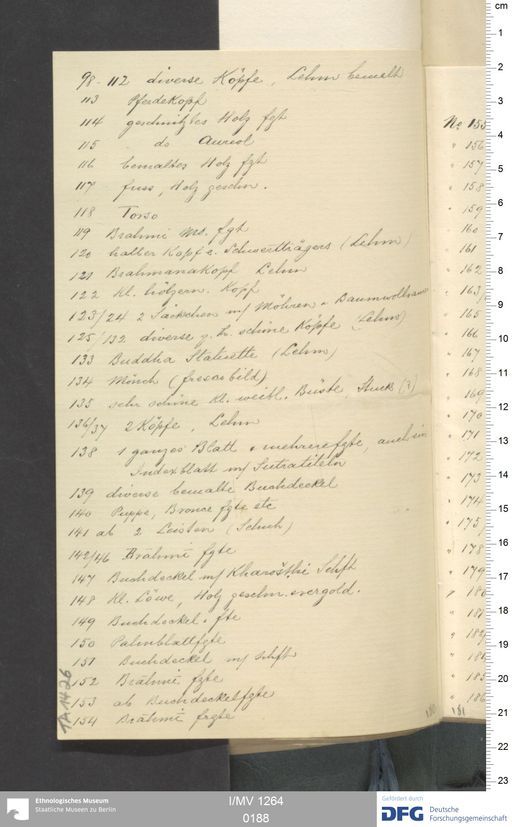 98-112 diverse Köpfe, Lehm bemalt
113 Pferdekopf
114 geschnitztes Holz fgt
115 do Aureol
116 bemaltes Holz fgt
117 fuss, Holz geschn.
118 Torso
119 Brahmi Ms. fgt
120 halber Kopf e. Schwertträgers (Lehm)
121 Brahmanakopf Lehm
122 kl. hölzern. Kopf
123/24 2 Säckchen m/ Möhren u Baumwollsamen
125/132 diverse z. T. schöne Köpfe (Lehm)
133 Buddha Statuette (Lehm)
134 Mönch (frescobild)
135 sehr schöne kl. weibl. Büste, Stuck (?)
136/37 2 Köpfe, Lehm
138 1 ganzes Blatt u mehrere fgte, auch ein
Indexblatt m/ Sutratiteln
139 diverse bemalte Buchdeckel
140 Puppe, Bronce fgte etc
141 ab 2 Leisten (Schuh)
142/46 Brāhmī fgte
147 Buchdeckel m/ Kharoṣṭhi Schft
148 kl. Löwe, Holz geschn. vergold.
149 Buchdeckel. fte
150 Palmblattfgte
151 Buchdeckel m/ Schft
152 Brāhmī fgte
153 ab Buchdeckelfgte
154 Brāhmī frgte
TA 1426
180
No 155
" 156
" 157
" 158
" 159
" 160
" 161
" 162
" 163/
" 165
" 166
" 167
" 168
" 169
" 170
" 171
" 172
" 173
" 174
" 175/
" 178
" 179
" 180
" 181
" 182/
" 184
" 185
" 186
181
cm
1
2
3
4
5
6
7
8
9
10
11
12
13
14
15
16
17
18
19
20
21
22
23
Ethnologisches Museum
Staatliche Museen zu Berlin
I/MV 1264
0188
Gefördert durch
DFG Deutsche
Forschungsgemeinschaft